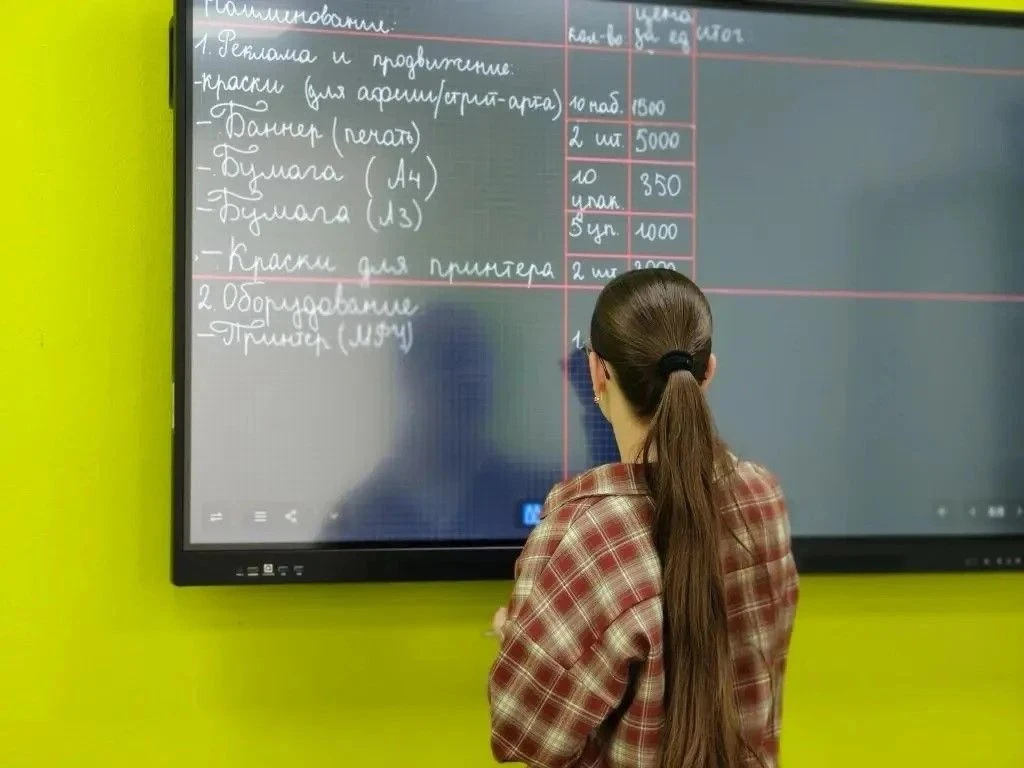 Наименование: кол-во цена за ед итог
1. Реклама и продвижение:
-краски (для афиши/стрит-арта) 10 наб. 1500
- Баннер (печать) 2 шт. 5000
- Бумага (А4) 10 упак. 350
- Бумага (А3) 5 уп. 1000
- Краски для принтера 2 шт.
2. Оборудование
- Принтер (МФУ) 1